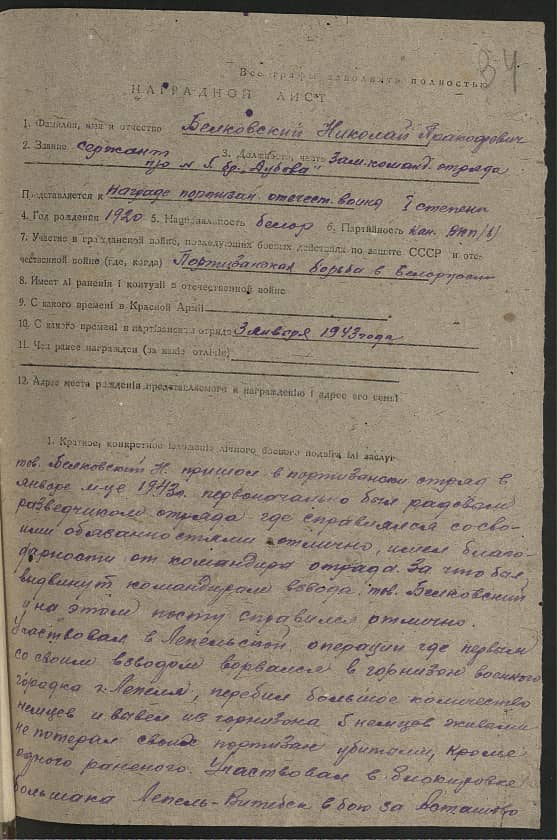 34
Все графы заполнять полностью
НАГРАДНОЙ ЛИСТ
1. Фамилия, имя и отчество Белковский Николай Прокофович
2. Звание сержант 3. Должность, часть Зам. команд. отряда
п/о № 5 бр. „Дубова"
Представляется к награде партизан. отечест. война I степени
4. Год рождения 1920 5. Национальность белор 6. Партийность кан. ВКП/б/
7. Участие в гражданской войне, последующих боевых действиях по защите СССР и оте-
чественной войне (где, когда) Портизанская борьба в Белоруссии
8. Имеет лі раненія і контузіі в отечественной войне
9. С какого времені в Красной Армії
10. С какого времені в партізанском отряде 3 января 1943 года
11. Чем ранее награжден (за какіе отлічія)
12. Адрес места рожденія представляемого к награжденію і адрес его семьі
1. Краткое, конкретное ізложеніе лічного боевого подвіга ілі заслуг
тов. Белковский Н. пришол в портизански отряд в
январе м-це 1943г. первоначально был радовым
разведчиком отряда где справлялся со сво-
ими обязанностями отлично, имел благо-
дарности от командира отряда. За что был
выдвинут командирам взвода. тов. Белковский
и на этом посту справился отлично.
Участвовал в Лепельской операции где первым
со своим взводом ворвался в горнизон военного
городка г. Лепеля, перебил большое количество
немцев и вывел из горнизона 5 немцев живыми
не потерал своих портизан убитами, кроме
одного раненого. Участвовал в блокировке
большака Лепель-Витебск в бою за Асташово